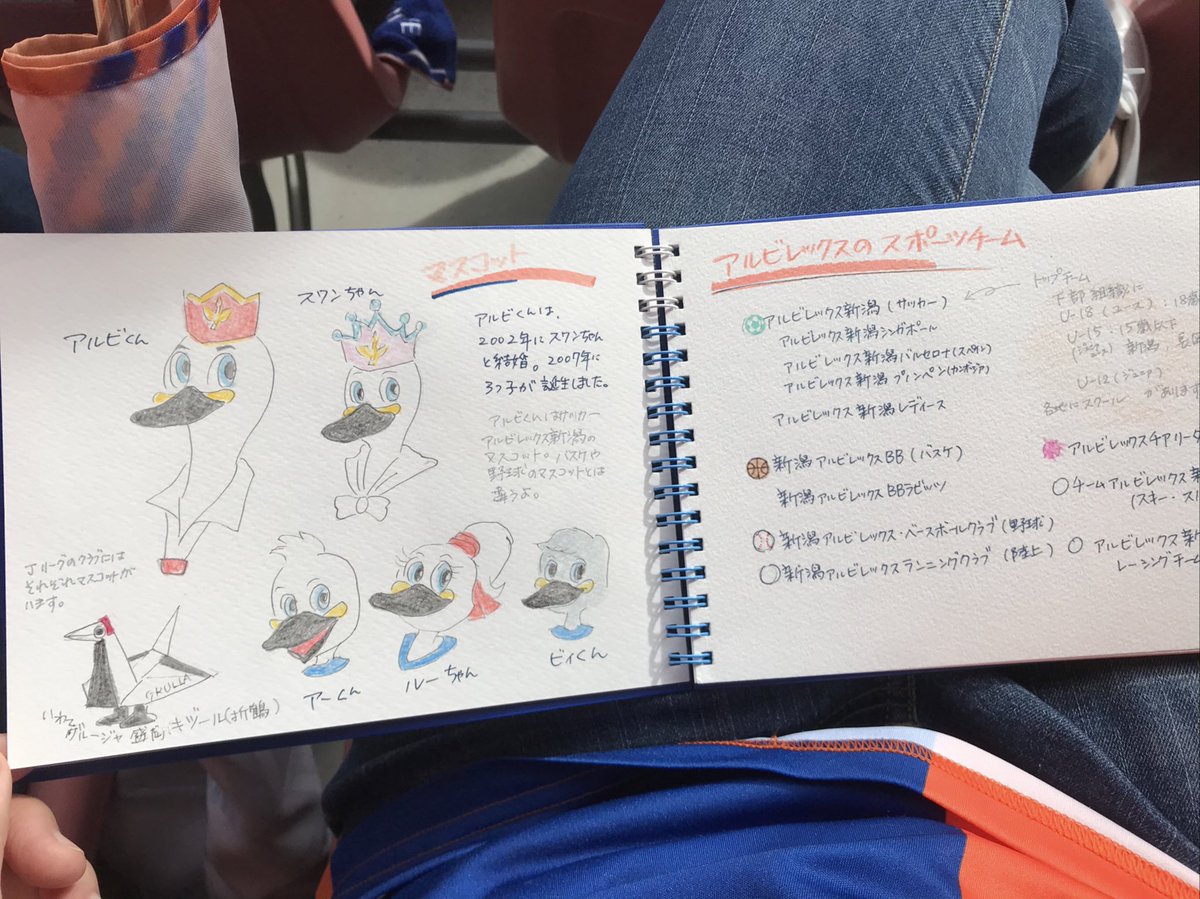 マスコット
アルビくん
スワンちゃん
アルビくんは、
2002年にスワンちゃん
と結婚。2007年に
3つ子が誕生しました。
アルビくんはサッカー
アルビレックス新潟の
マスコット。バスケや
野球のマスコットとは
違うよ。
Jリーグのクラブには
それぞれマスコットが
います。
アーくん
ルーちゃん
ビィくん
GRULLA
いわて
グルージャ盛岡 キヅール(折鶴)
アルビレックスのスポーツチーム
アルビレックス新潟(サッカー)
アルビレックス新潟シンガポール
アルビレックス新潟バルセロナ(スペイン)
アルビレックス新潟プノンペン(カンボジア)
アルビレックス新潟レディース
新潟アルビレックスBB(バスケ)
新潟アルビレックスBBラビッツ
新潟アルビレックス・ベースボールクラブ(野球)
新潟アルビレックスランニングクラブ(陸上)
トップチーム
下部組織に
U-18(ユース):18歳
U-15:15歳以下
(ジュニアユース)新潟、長岡
U-12(ジュニア)
各地にスクールがあります
アルビレックスチアリーダ
チームアルビレックス新
(スキー・ス
アルビレックス新
レーシングチーム